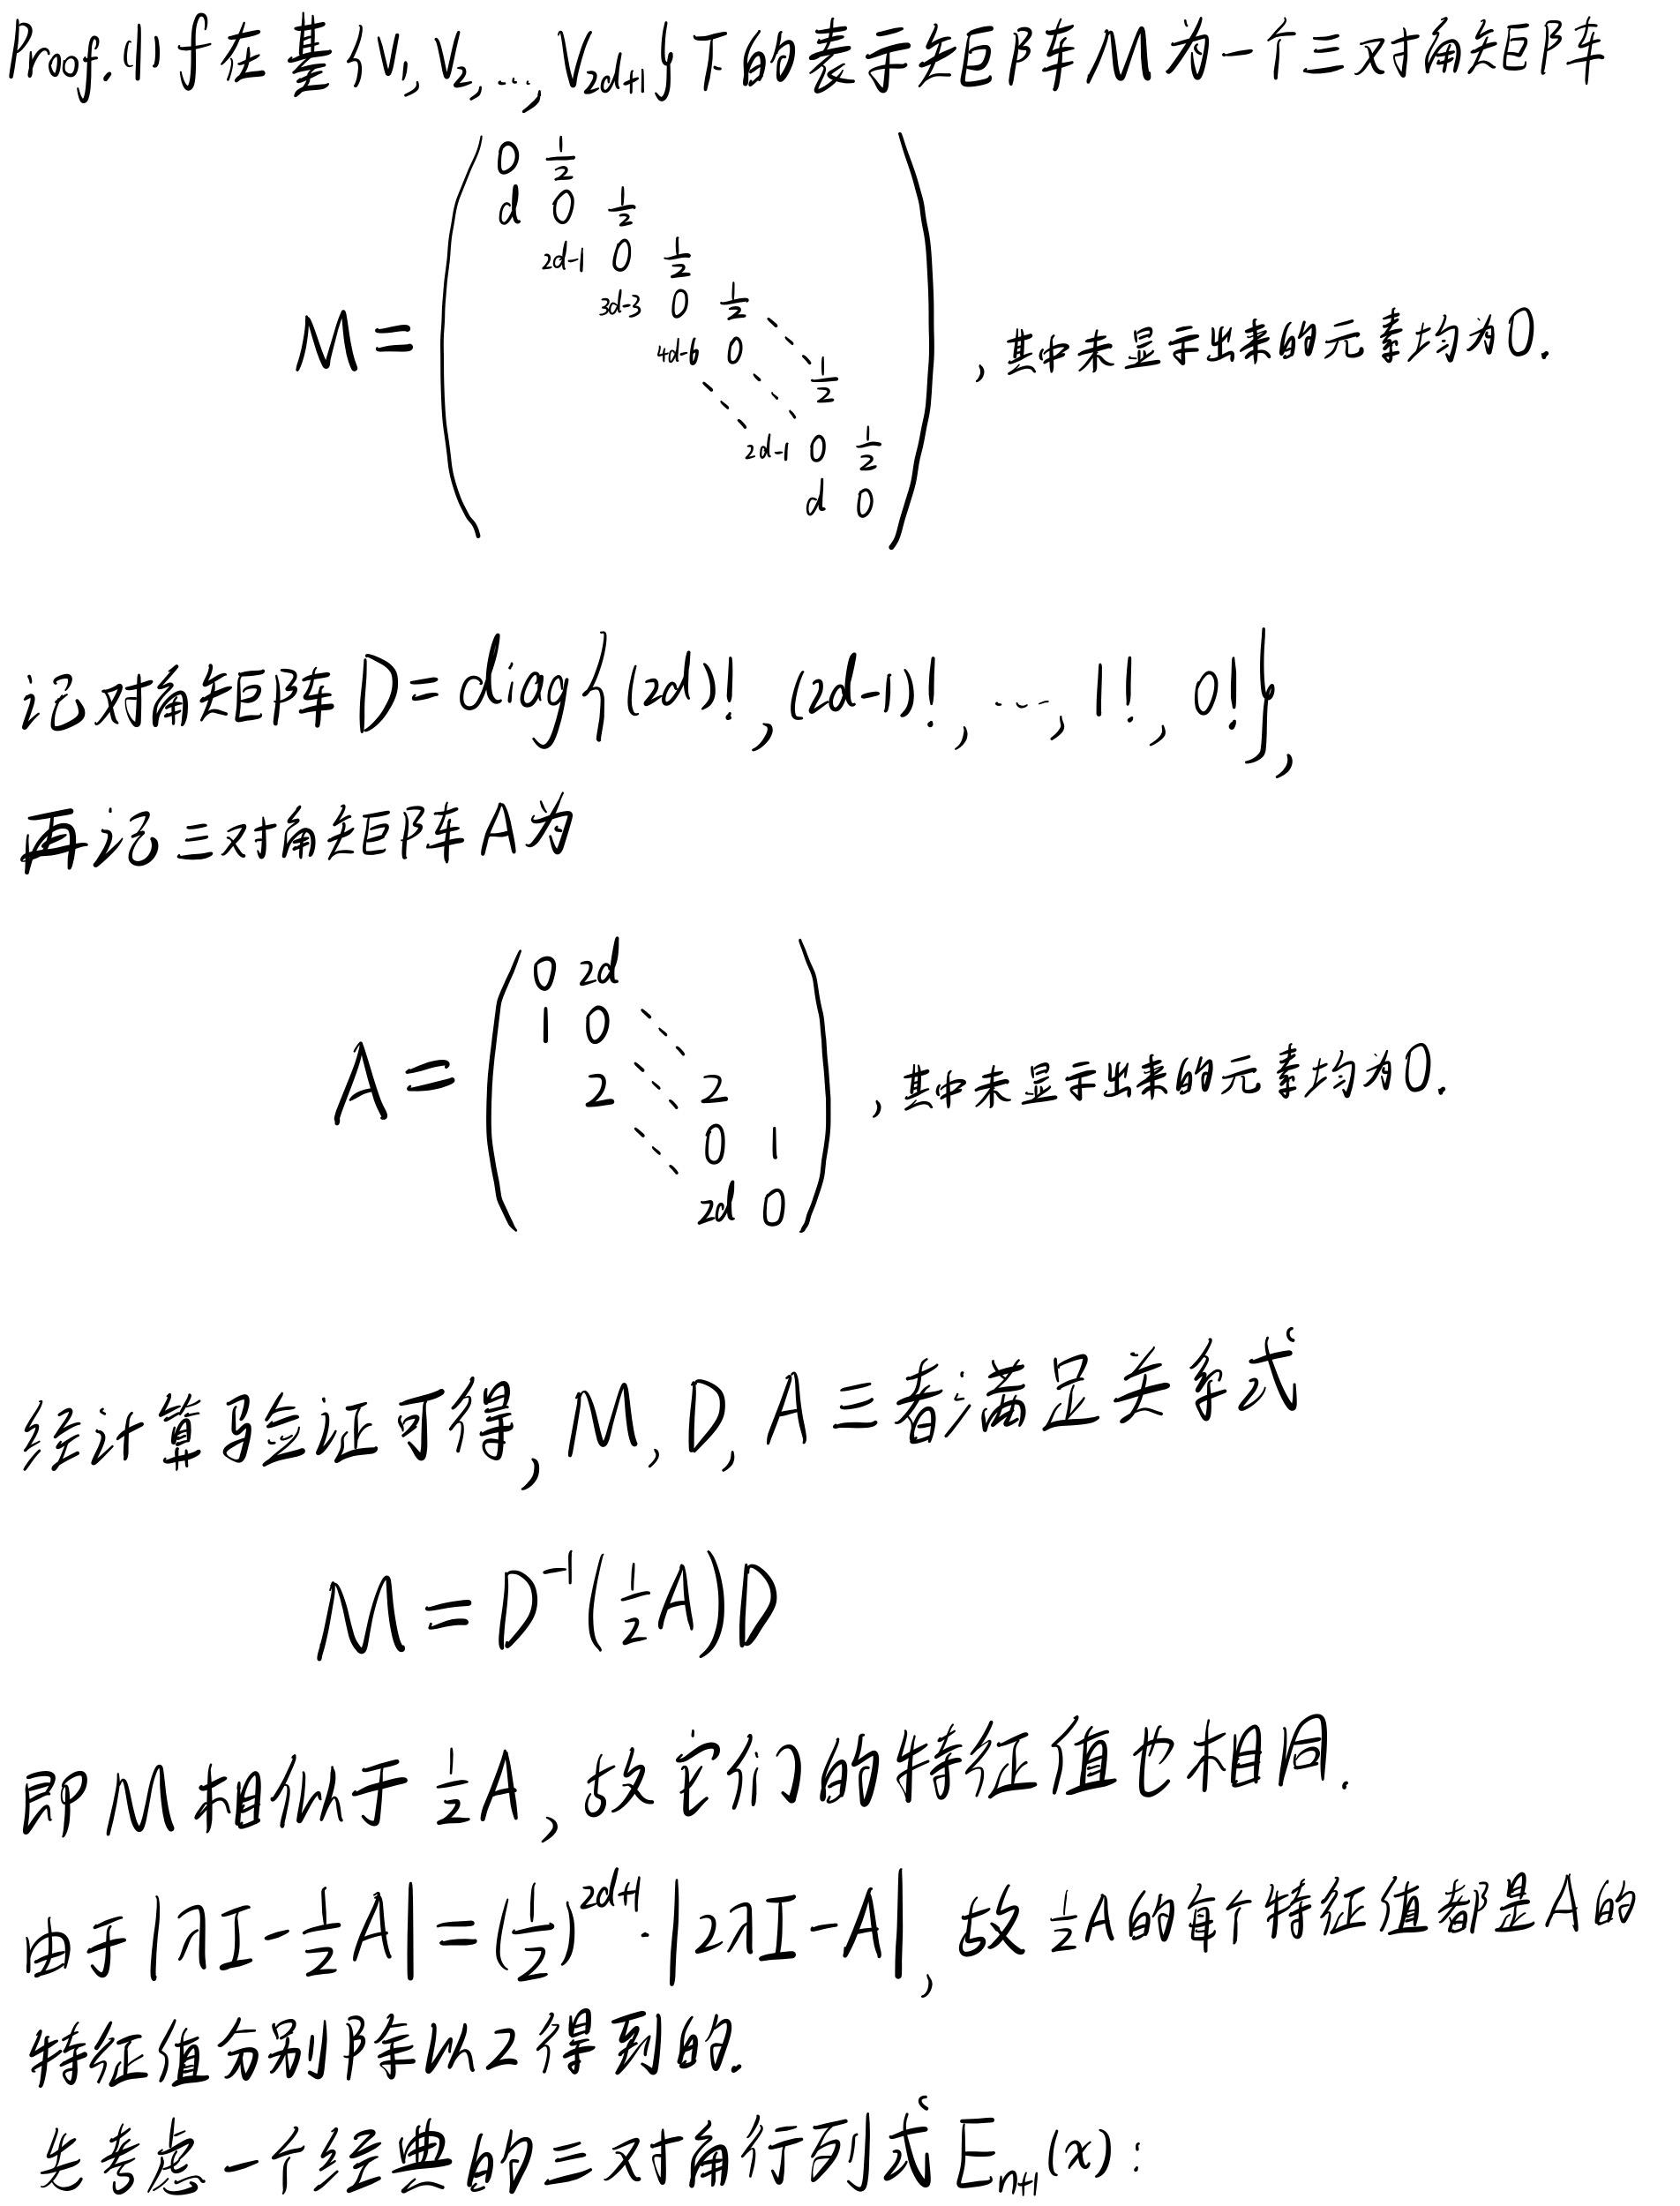 Proof. (1) f在基{V₁, V₂, ..., V_{2d+1}}下的表示矩阵M为一个三对角矩阵
M = \begin{pmatrix} 0 & \frac{1}{2} & & & & & \\ d & 0 & \frac{1}{2} & & & & \\ & 2d-1 & 0 & \frac{1}{2} & & & \\ & & 3d-3 & 0 & \frac{1}{2} & & \\ & & & 4d-6 & 0 & \ddots & \\ & & & & \ddots & \ddots & \frac{1}{2} & \\ & & & & & 2d-1 & 0 & \frac{1}{2} \\ & & & & & & d & 0 \end{pmatrix}, 其中未显示出来的元素均为0.
记对角矩阵 D = diag{(2d)!, (2d-1)!, ..., 1!, 0!},
再记三对角矩阵A为
A = \begin{pmatrix} 0 & 2d & & & \\ 1 & 0 & \ddots & & \\ & 2 & \ddots & 2 & \\ & & \ddots & 0 & 1 \\ & & & 2d & 0 \end{pmatrix}, 其中未显示出来的元素均为0.
经计算验证可得, M, D, A三者满足关系式
M = D⁻¹(\frac{1}{2}A)D
即M相似于\frac{1}{2}A, 故它们的特征值也相同.
由于|λI-\frac{1}{2}A| = (\frac{1}{2})^{2d+1}·|2λI-A|, 故\frac{1}{2}A的每个特征值都是A的
特征值分别除以2得到的.
先考虑一个经典的三对角行列式E_{n+1}(x):